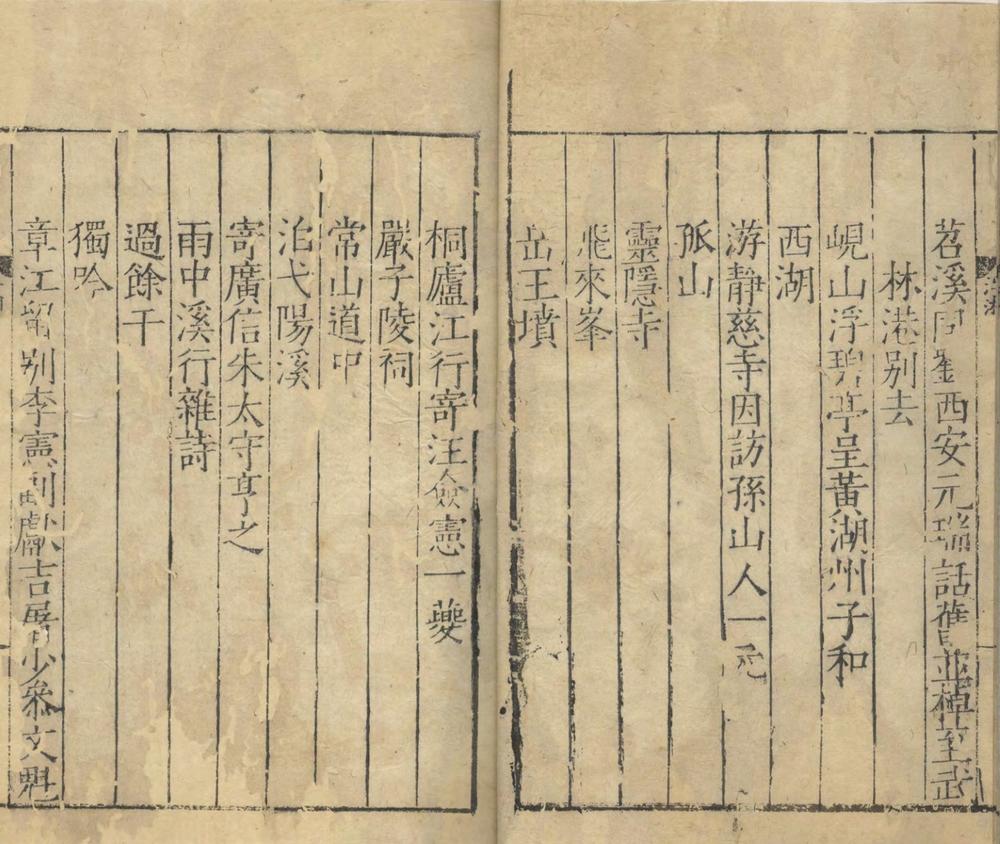 苕溪同劉西安元瑞話舊並棹至武
林港別去
峴山浮碧亭呈黃湖州子和
西湖
游靜慈寺因訪孫山人一元
孤山
靈隱寺
飛來峯
岳王墳
桐廬江行寄汪僉憲一夔
嚴子陵祠
常山道中
泊弋陽溪
寄廣信朱太守亨之
雨中溪行雜詩
過餘干
獨吟
章江留別李憲副獻吉屠少叅文魁